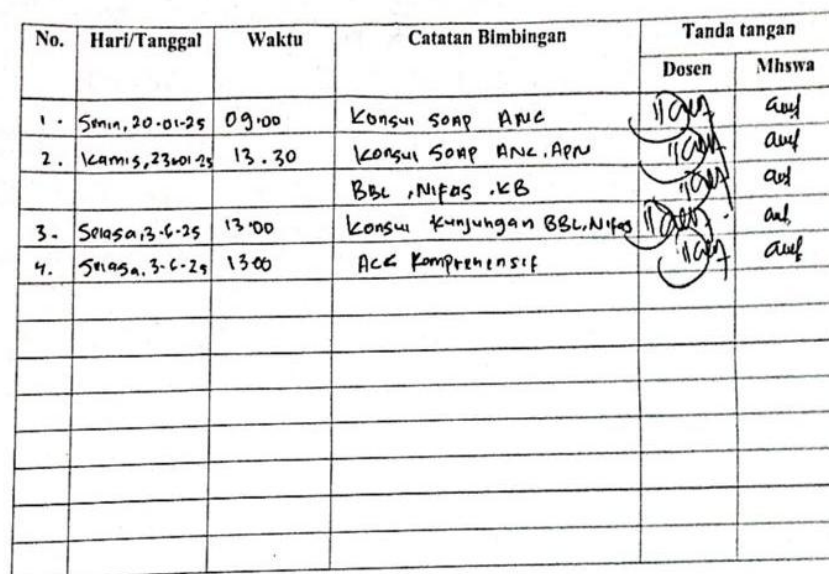 No. Hari/Tanggal Waktu Catatan Bimbingan Tanda tangan
Dosen Mhswa
1. Senin, 20-01-25 09.00 Konsul SOAP ANC
2. Kamis, 23-01-25 13.30 Konsul SOAP ANC, APN
BBL, Nifas, KB
3. Selasa, 3-6-25 13.00 Konsul Kunjungan BBL, Nifas
4. Selasa, 3-6-25 13.00 Acc Komprehensif